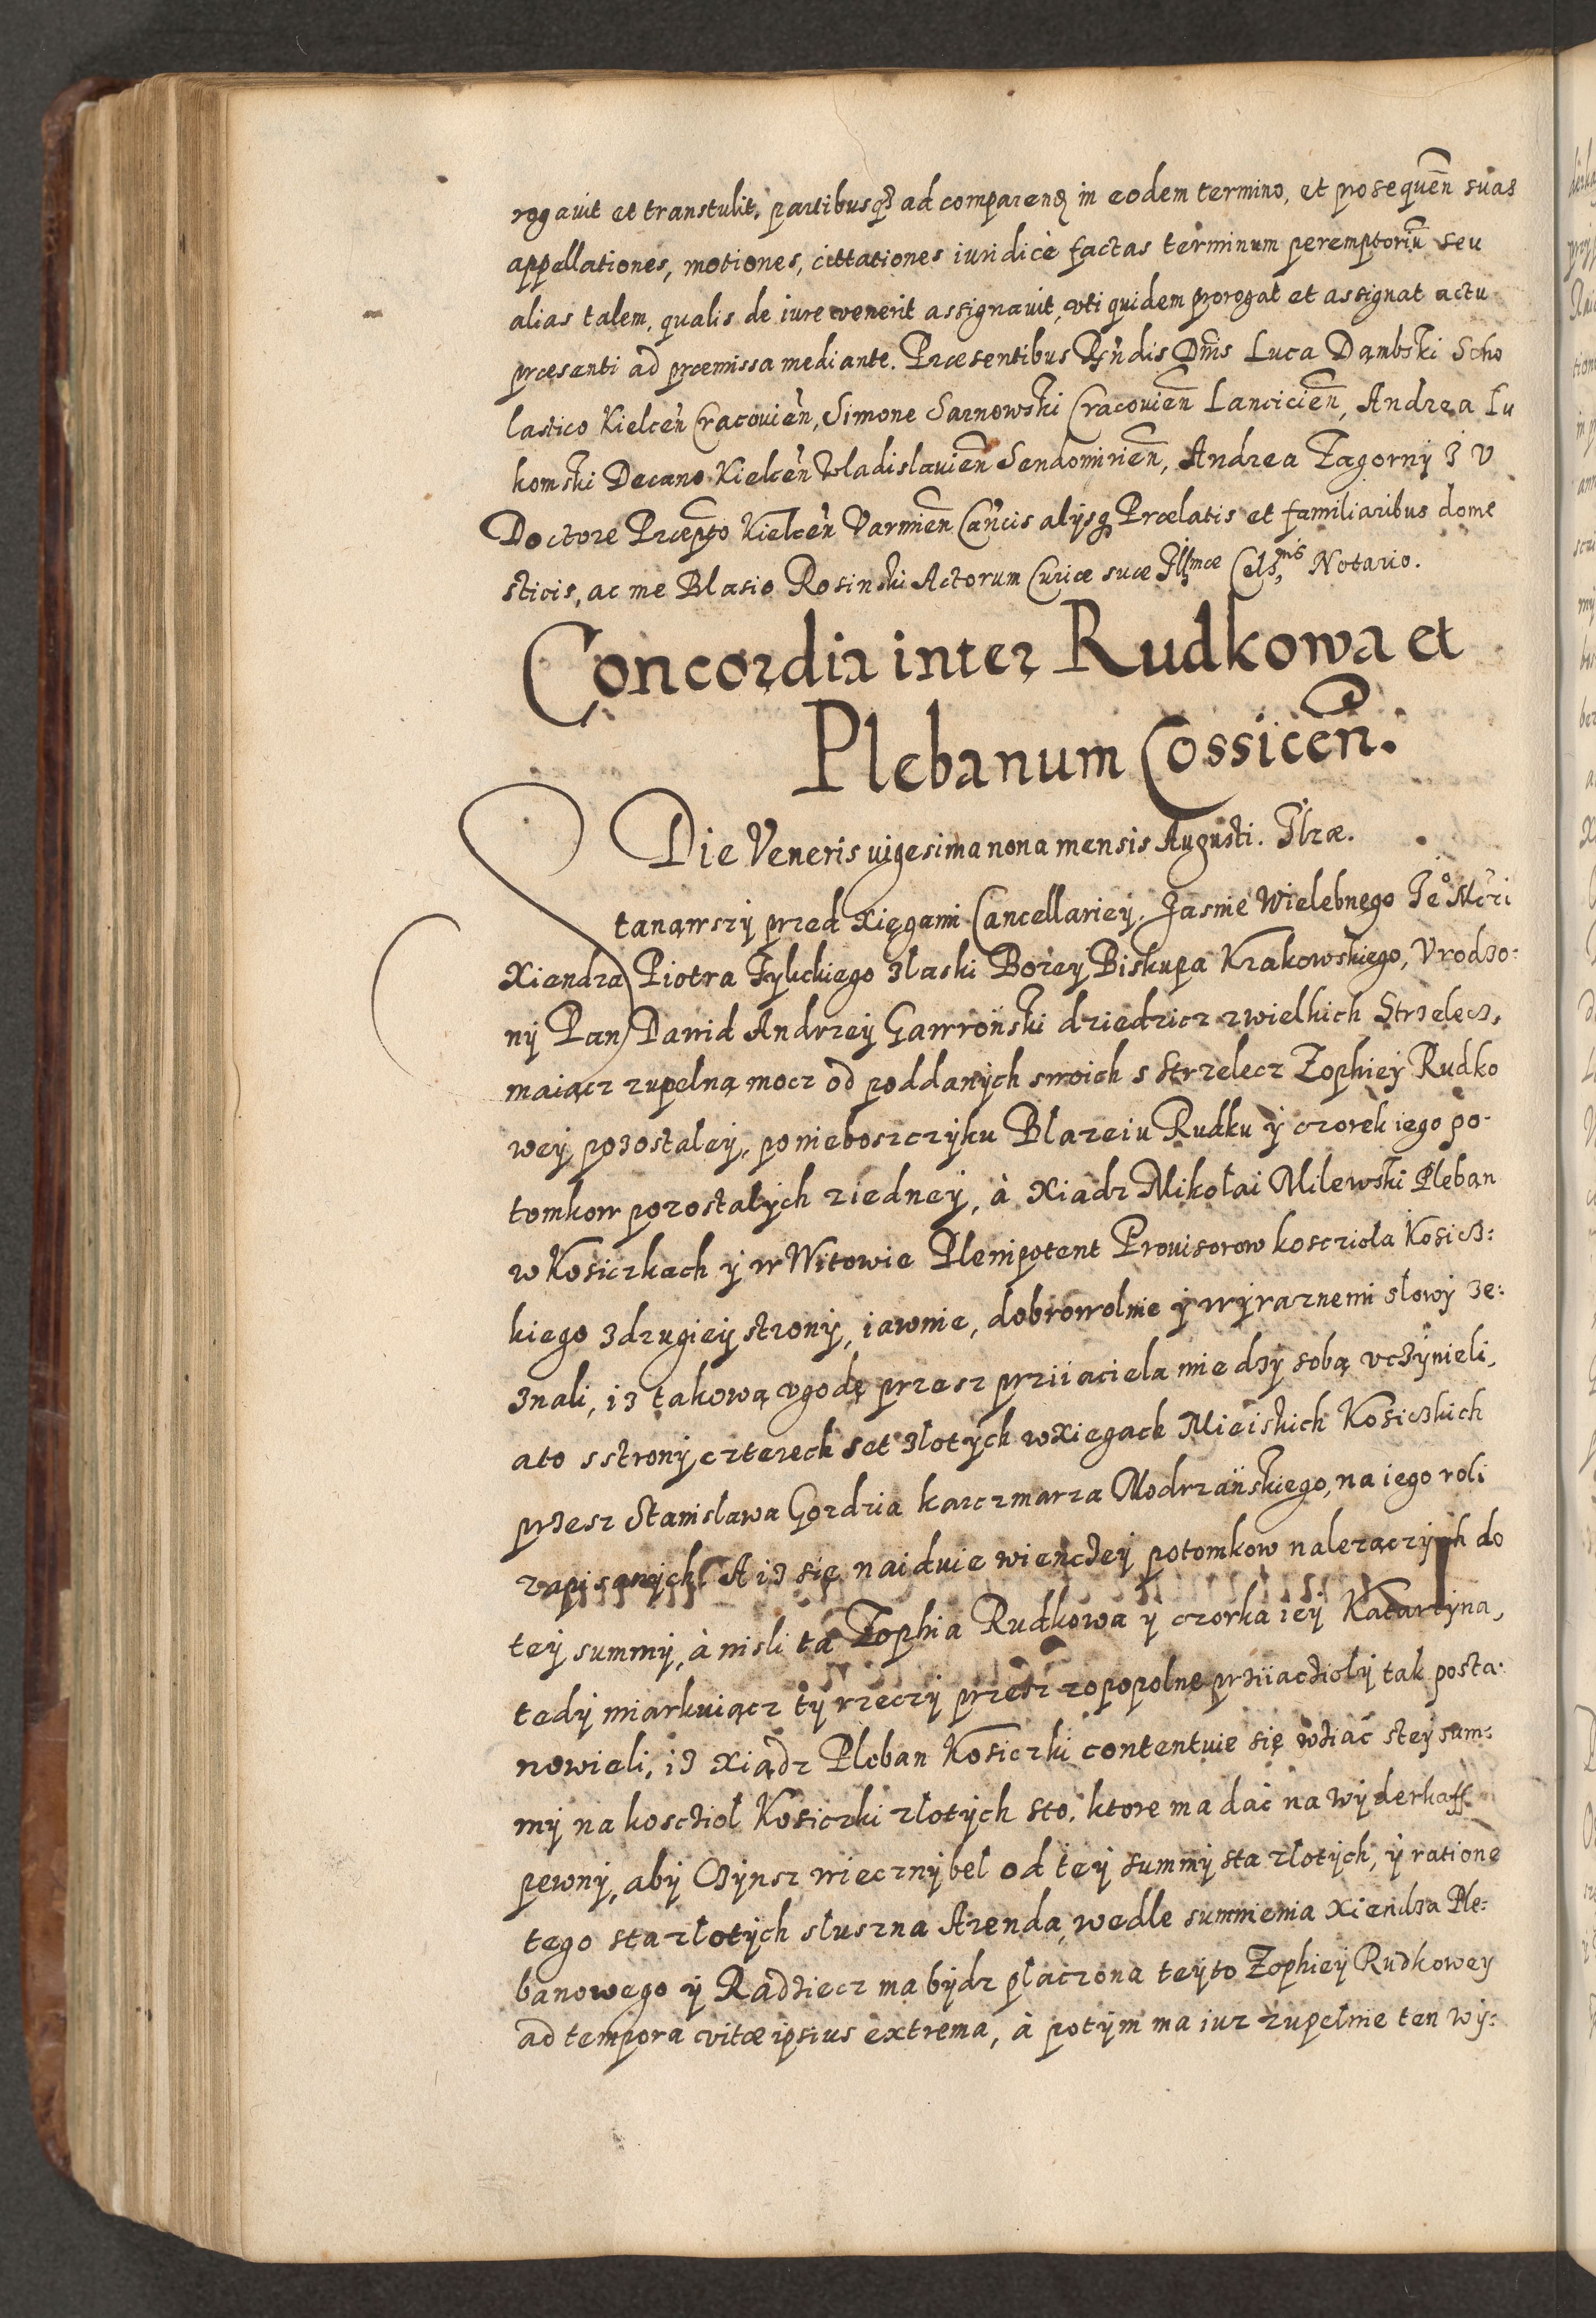 rogauit et transtulit, partibusq3 ad comparenq in eodem termino, et prosequen̄ suas
appellationes, motiones, cittationes iuridicè factas terminum peremptoriū seu
alias talem, qualis de iure venerit assignauit, vti quidem prorogat et assignat actu
præsenti ad præmissa mediante. Præsentibus Rn̄dis Dn̄is Luca Dąmbski Scho
lastico Kielcen̄ Cracouien̄, Simone Sarnowski Cracouien̄ Lancicien̄, Andrea Lu
komski Decano Kielcen̄ Wladislauien̄ Sendomirien̄, Andrea Zagorny J V
Doctore Præpto Kielcen̄ Varmien̄ Can̄cis alijsq Prælatis et familiaribus dome
sticis, ac me Blasio Rosinski Actorum Curiæ suæ Illmæ Cels,nis Notario.
Concordia inter Rudkowa et
Plebanum Cossicen̄.
Die Veneris uigesima nona mensis Augusti. Ilzæ.
Stanąwszy przed xięgami Cancellariey. Jasnie Wielebnego Jeº Mći
Xiendza Piotra Tylickiego złaski Bozey Biskupa Krakowskiego, Vrodzo-
ny Pan Dawid Andrzey Gawroński dziedzicz zwielkich Strzelecz,
maiącz zupełną mocz od poddanych swoich s Strzelecz Zophiey Rudko
wey pozostałey, po nieboszczyku Błazeiu Rudku y czorek iego po-
tomkow pozostałych ziedney, à Xiadz Mikołai Milewski Pleban
w Kosiczkach y w Witowie Plenipotent Prouisorow kosczioła Kosicz:
kiego zdrugiey strony, iawnie, dobrowolnie y wyraznemi słowy ze:
znali, iz takową vgodę przesz prziiaciela miedzy sobą vczynieli,
ato sstrony czterech set złotych wxiegach Mieiskich Kosiczkich
przesz Stanisława Gozdzia karczmarza Modrzańskiego, na iego roli
zapisanych. A iz się naiduie wienczey potomkow nalezączych do
tey summy, à nisli ta Zophia Rudkowa y czorka iey Katarzyna,
tedy miarkuiącz ty rzeczy przesz zopopolne prziiaczioły tak posta-
nowieli, iz xiądz Pleban Kosiczki contentuie się wziąć stey sum:
my na koscziol Kosiczki złotych sto, ktore ma dać na wyderkaff
pewny, aby Czynsz wieczny beł od tey summy sta złotych, y ratione
tego sta złotych słuszna Arenda, wedle sumnienia Xiendza Ple:
banowego y Radziecz ma bydz płaczona teyto Zophiey Rudkowey
ad tempora vitæ ipsius extrema, à potym ma iuz zupełnie ten wy: